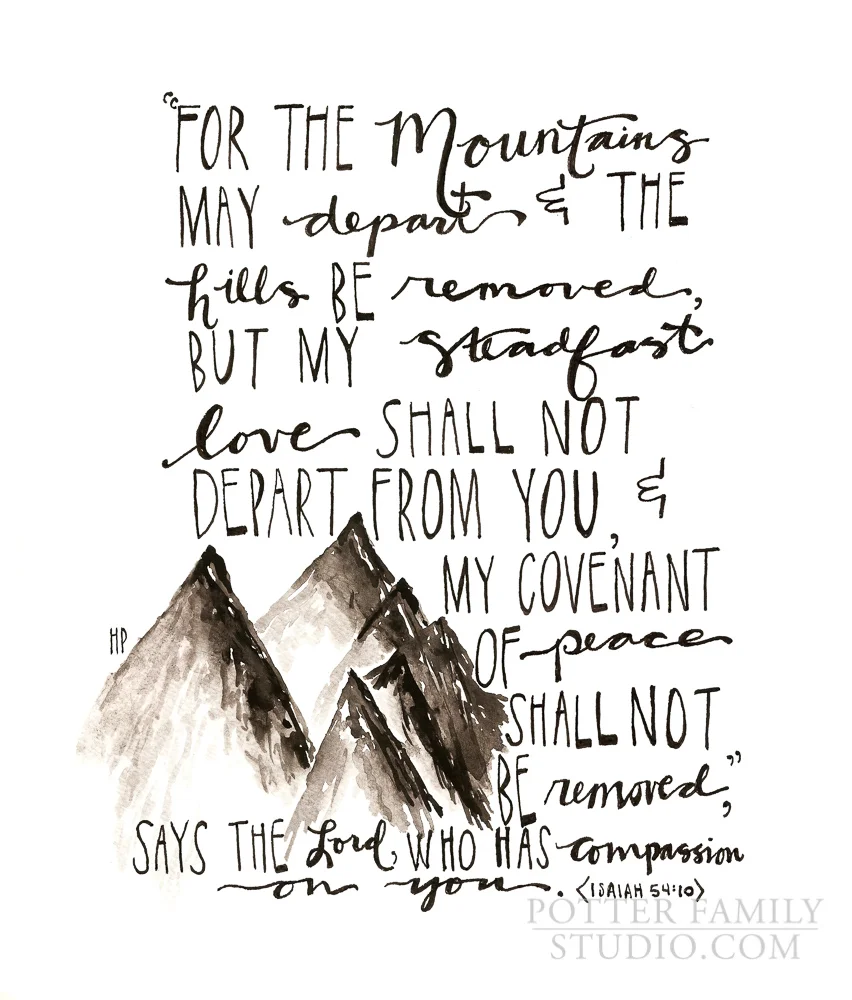 “FOR THE Mountains
MAY depart & THE
hills BE removed,
BUT MY steadfast
love SHALL NOT
DEPART FROM YOU, &
MY COVENANT
HP
OF peace
SHALL NOT
BE removed,”
SAYS THE Lord, WHO HAS compassion
on you. <ISAIAH 54:10>
POTTER FAMILY
STUDIO.COM